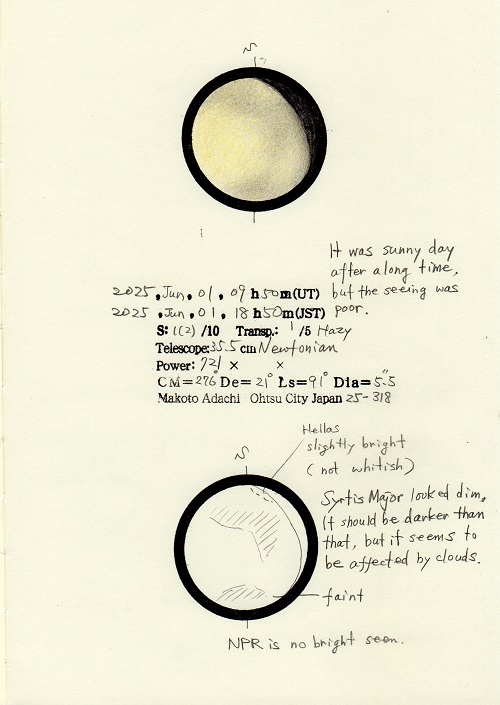 S
It was sunny day
after a long time,
but the seeing was
poor.
2025, Jun, 01, 09 h 50 m (UT)
2025, Jun, 01, 18 h 50 m (JST)
S: 1(2) /10 Transp.: 1 /5 Hazy
Telescope: 35.5 cm Newtonian
Power: 721 × ×
CM=276° De=21° Ls=91° Dia=5.5"
Makoto Adachi Ohtsu City Japan 25-318
Hellas
slightly bright
(not whitish)
S
Syrtis Major looked dim,
It should be darker than
that, but it seems to
be affected by clouds.
faint
NPR is no bright seen.